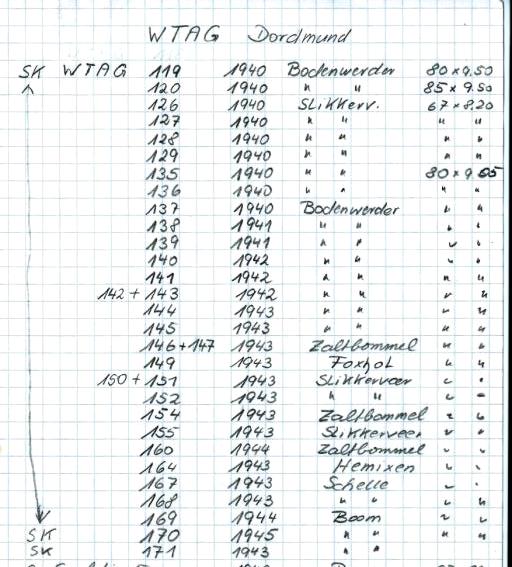 WTAG Dordmund
SK WTAG 119 1940 Bodenwerder 80 x 9.50
120 1940 " " 85 x 9.50
126 1940 Slikkerv. 67 x 8.20
127 1940 " " " "
128 1940 " " " "
129 1940 " " " "
135 1940 " " 80 x 9.05
136 1940 " " " "
137 1940 Bodenwerder " "
138 1941 " " " "
139 1941 " " " "
140 1942 " " " "
141 1942 " " " "
142 + 143 1942 " " " "
144 1943 " " " "
145 1943 " " " "
146 + 147 1943 Zaltbommel " "
149 1943 Foxhol " "
150 + 151 1943 Slikkerveer " "
152 1943 " " " "
154 1943 Zaltbommel " "
155 1943 Slikkerveer " "
160 1944 Zaltbommel " "
164 1943 Hemixen " "
167 1943 Schelle " "
168 1943 " " " "
169 1944 Boom " "
SK 170 1945 " " " "
SK 171 1943 " "